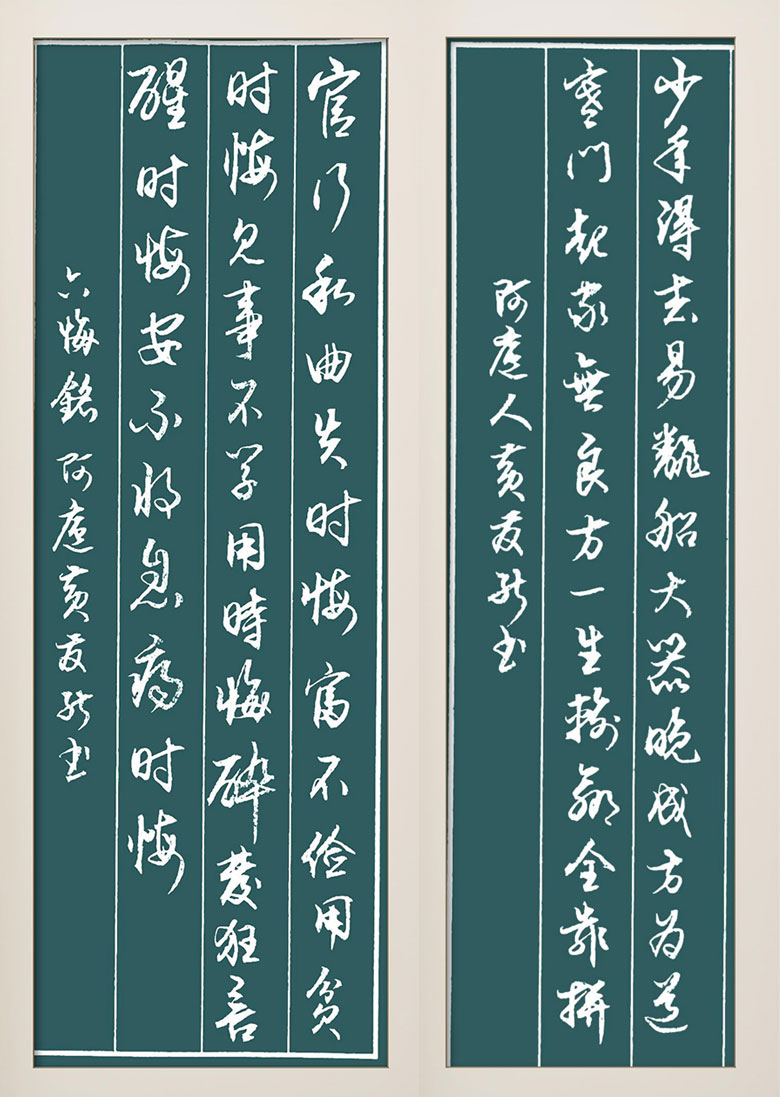 少年得志易翻船大器晚成方为道
寒门起家無良方一生输赢全靠拼
阿人黄书
官行私曲失时悔富不俭用贫
时悔见事不学用時悔醉發狂言
醒时悔安不将息病时悔
六悔銘 阿黄书